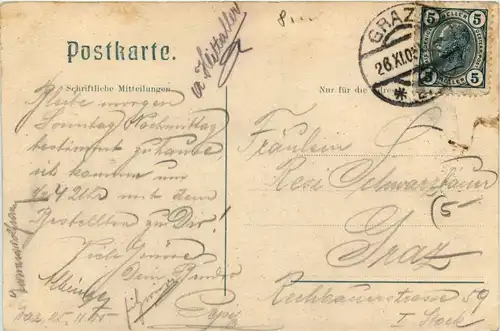 Postkarte.
Schriftliche Mitteilungen
Nur für die Adresse
GRAZ
26 XI 05
5 HELLER 5
5 5
Bleibe morgen
Sonntag Nachmittag
bestimmt zuhause,
ich komme um
1/2 4 Uhr mit dem
Bestellten zu Dir!
Viele Grüsse
Dein Bruder
Pepi
Graz, 25. 11. 05
Fräulein
Resi Schwarzbauer
Graz
(5-
Rechbauerstrasse 59
I. Stock